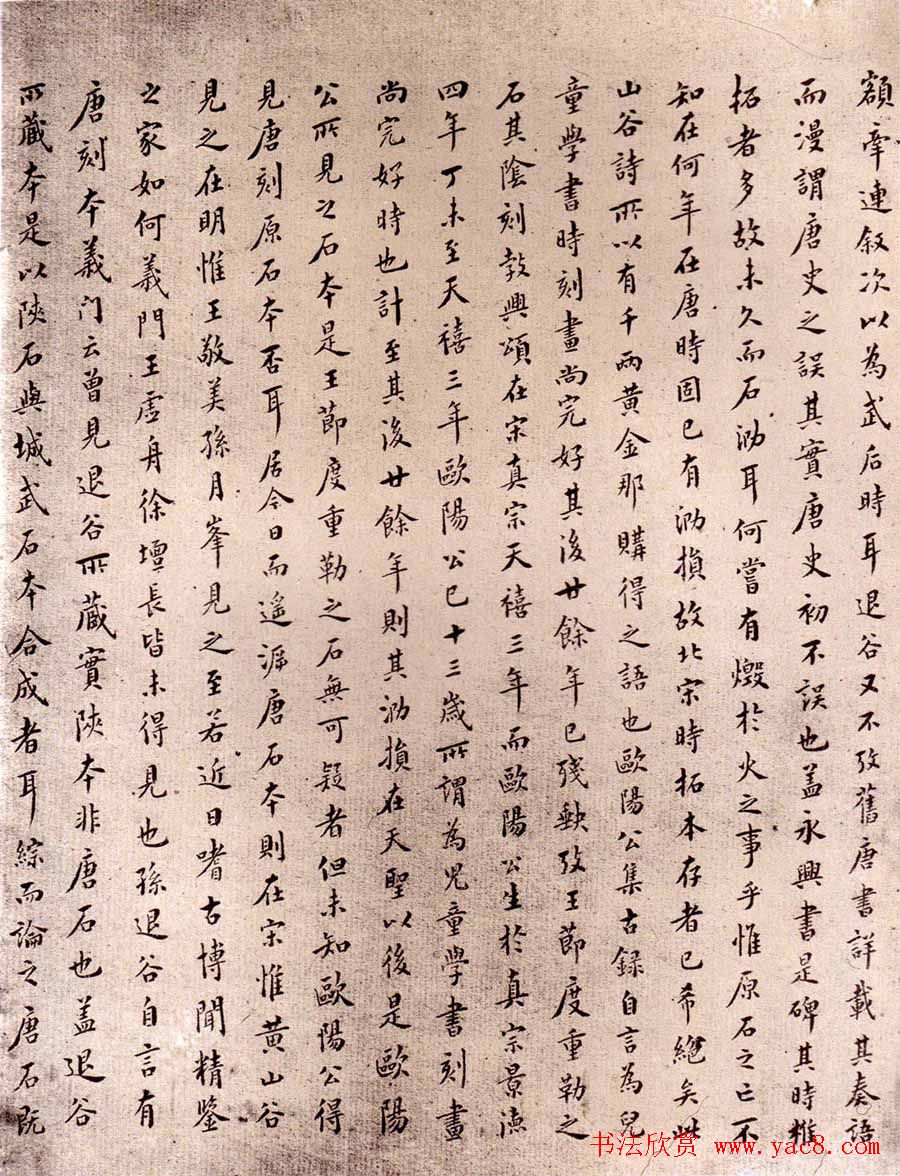 額牽連敘次以為武后時耳退谷又不攷舊唐書詳載其奏語
而漫謂唐史之誤其實唐史初不誤也盖永興書是碑其時椎
拓者多故未久而石泐耳何嘗有燬於火之事乎惟原石之亡不
知在何年在唐時固已有泐損故北宋時拓本存者已希絕矣此
山谷詩所以有千兩黃金那購得之語也歐陽公集古錄自言為兒
童學書時刻畫尚完好其後廿餘年已殘缺攷王節度重勒之
石其陰刻敦興頌在宋真宗天禧三年而歐陽公生於真宗景德
四年丁未至天禧三年歐陽公已十三歲所謂為兒童學書刻畫
尚完好時也計至其後廿餘年則其泐損在天聖以後是歐陽
公所見之石本是王節度重勒之石無可疑者但未知歐陽公得
見唐刻原石本否耳居今日而遥溯唐石本則在宋惟黃山谷
見之在明惟王敬美孫月峯見之至若近日嗜古博聞精鑒
之家如何義門王虛舟徐壇長皆未得見也孫退谷自言有
唐刻本義门云曾見退谷所藏實陝本非唐石也盖退谷
所藏本是以陝石與城武石本合成者耳綜而論之唐石既
书法欣赏 www.yac8.com